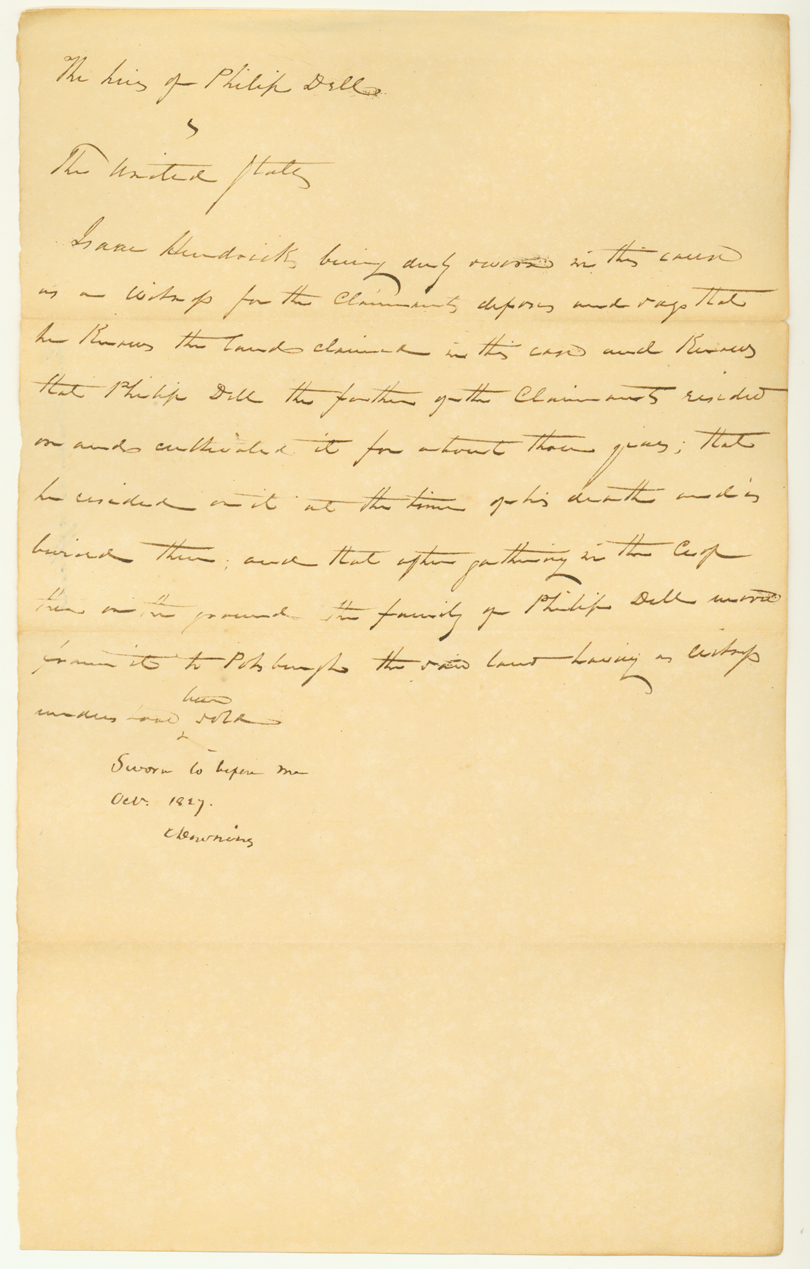 The heirs of Philip Dell
s
The United States
Isaac Hendricks being duly sworn in this cause
as a witness for the Claimants deposes and says that
he Knows the land claimed in this case and Knows
that Philip Dell the father of the Claimants resided
on and cultivated it for about three years; that
he resided on it at the time of his death and is
buried there; and that after gathering in the Crop
then on the ground the family of Philip Dell moved
from it to Pitsburgh the said land having as witness
understood been sold
Sworn to before me
Octr. 1827.
C Downing